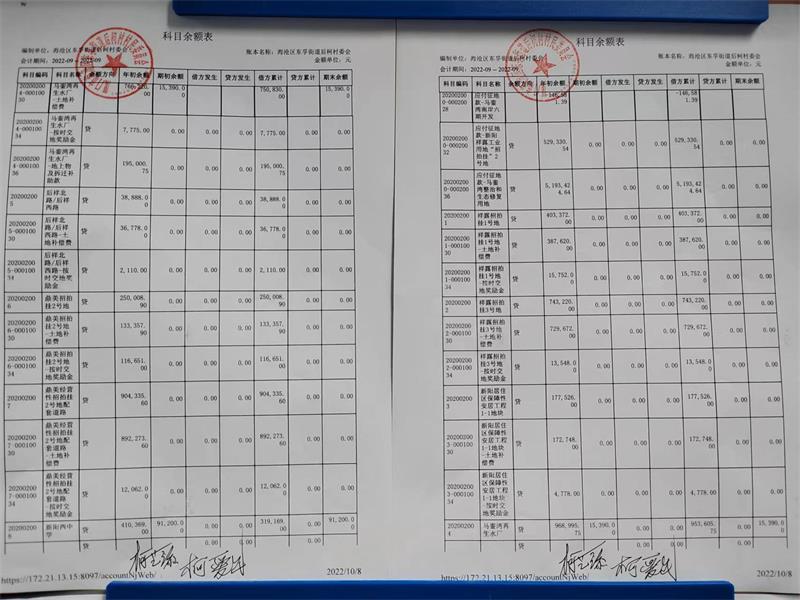 科目余额表
编制单位：海沧区东孚街道后柯村委会 账本名称：海沧区东孚街道后柯村委会
会计期间：2022-09 --2022-09 金额单位：元
科目编码 科目名称 余额方向 年初余额 期初余额 借方发生 贷方发生 借方累计 贷方累计 期末余额
202002004-0001030 马銮湾再生水厂-土地补偿费 15,390.00 0.00 0.00 750,830.00 0.00 15,390.00
202002004-0001034 马銮湾再生水厂-按时交地奖励金 贷 7,775.00 0.00 0.00 0.00 7,775.00 0.00 0.00
202002004-0001036 马銮湾再生水厂-地上物及拆迁补助款 贷 195,000.75 0.00 0.00 0.00 195,000.75 0.00 0.00
202002005 后祥北路/后祥西路 贷 38,888.00 0.00 0.00 0.00 38,888.00 0.00 0.00
202002005-0001030 后祥北路/后祥西路-土地补偿费 贷 36,778.00 0.00 0.00 0.00 36,778.00 0.00 0.00
202002005-0001034 后祥北路/后祥西路-按时交地奖励金 贷 2,110.00 0.00 0.00 0.00 2,110.00 0.00 0.00
202002006 鼎美招拍挂2号地 贷 250,008.90 0.00 0.00 0.00 250,008.90 0.00 0.00
202002006-0001030 鼎美招拍挂2号地-土地补偿费 贷 133,357.90 0.00 0.00 0.00 133,357.90 0.00 0.00
202002006-0001034 鼎美招拍挂2号地-按时交地奖励金 贷 116,651.00 0.00 0.00 0.00 116,651.00 0.00 0.00
202002007 鼎美经营性招拍挂2号地配套道路 贷 904,335.60 0.00 0.00 0.00 904,335.60 0.00 0.00
202002007-0001030 鼎美经营性招拍挂2号地配套道路-土地补偿费 贷 892,273.60 0.00 0.00 0.00 892,273.60 0.00 0.00
202002007-0001034 鼎美经营性招拍挂2号地配套道路-按时交地奖励金 贷 12,062.00 0.00 0.00 0.00 12,062.00 0.00 0.00
202002008 新阳西中学 贷 410,369.00 91,200.00 0.00 0.00 319,169.00 0.00 91,200.00
贷 0.00 0.00
https://172.21.13.15:8097/accountNjWeb/ 2022/10/8
科目余额表
编制单位：海沧区东孚街道后柯村委会 账本名称：海沧区东孚街道后柯村委会
会计期间：2022-09 --2022-09 金额单位：元
科目编码 科目名称 余额方向 年初余额 期初余额 借方发生 贷方发生 借方累计 贷方累计 期末余额
202002000-0002028 应付征地款-马銮湾南岸六期开发 -146,581.39 0.00 0.00 0.00 -146,581.39 0.00 0.00
202002000-0002032 应付征地款-新阳祥露工业用地"招拍挂"2号地 贷 529,330.54 0.00 0.00 0.00 529,330.54 0.00 0.00
202002000-0002036 应付征地款-马銮湾整治和生态修复用地 贷 5,193,424.64 0.00 0.00 0.00 5,193,424.64 0.00 0.00
202002001 祥露招拍挂1号地 贷 403,372.00 0.00 0.00 0.00 403,372.00 0.00 0.00
202002001-0001030 祥露招拍挂1号地-土地补偿费 贷 387,620.00 0.00 0.00 0.00 387,620.00 0.00 0.00
202002001-0001034 祥露招拍挂1号地-按时交地奖励金 贷 15,752.00 0.00 0.00 0.00 15,752.00 0.00 0.00
202002002 祥露招拍挂3号地 贷 743,220.00 0.00 0.00 0.00 743,220.00 0.00 0.00
202002002-0001030 祥露招拍挂3号地-土地补偿费 贷 729,672.00 0.00 0.00 0.00 729,672.00 0.00 0.00
202002002-0001034 祥露招拍挂3号地-按时交地奖励金 贷 13,548.00 0.00 0.00 0.00 13,548.00 0.00 0.00
202002003 新阳居住区保障性安居工程1-1地块 贷 177,526.00 0.00 0.00 0.00 177,526.00 0.00 0.00
202002003-0001030 新阳居住区保障性安居工程1-1地块-土地补偿费 贷 172,748.00 0.00 0.00 0.00 172,748.00 0.00 0.00
202002003-0001034 新阳居住区保障性安居工程1-1地块-按时交地奖励金 贷 4,778.00 0.00 0.00 0.00 4,778.00 0.00 0.00
202002004 马銮湾再生水厂 贷 968,995.75 15,390.00 0.00 0.00 953,605.75 0.00 15,390.00
贷 0.00 0.00
https://172.21.13.15:8097/accountNjWeb/ 2022/10/8